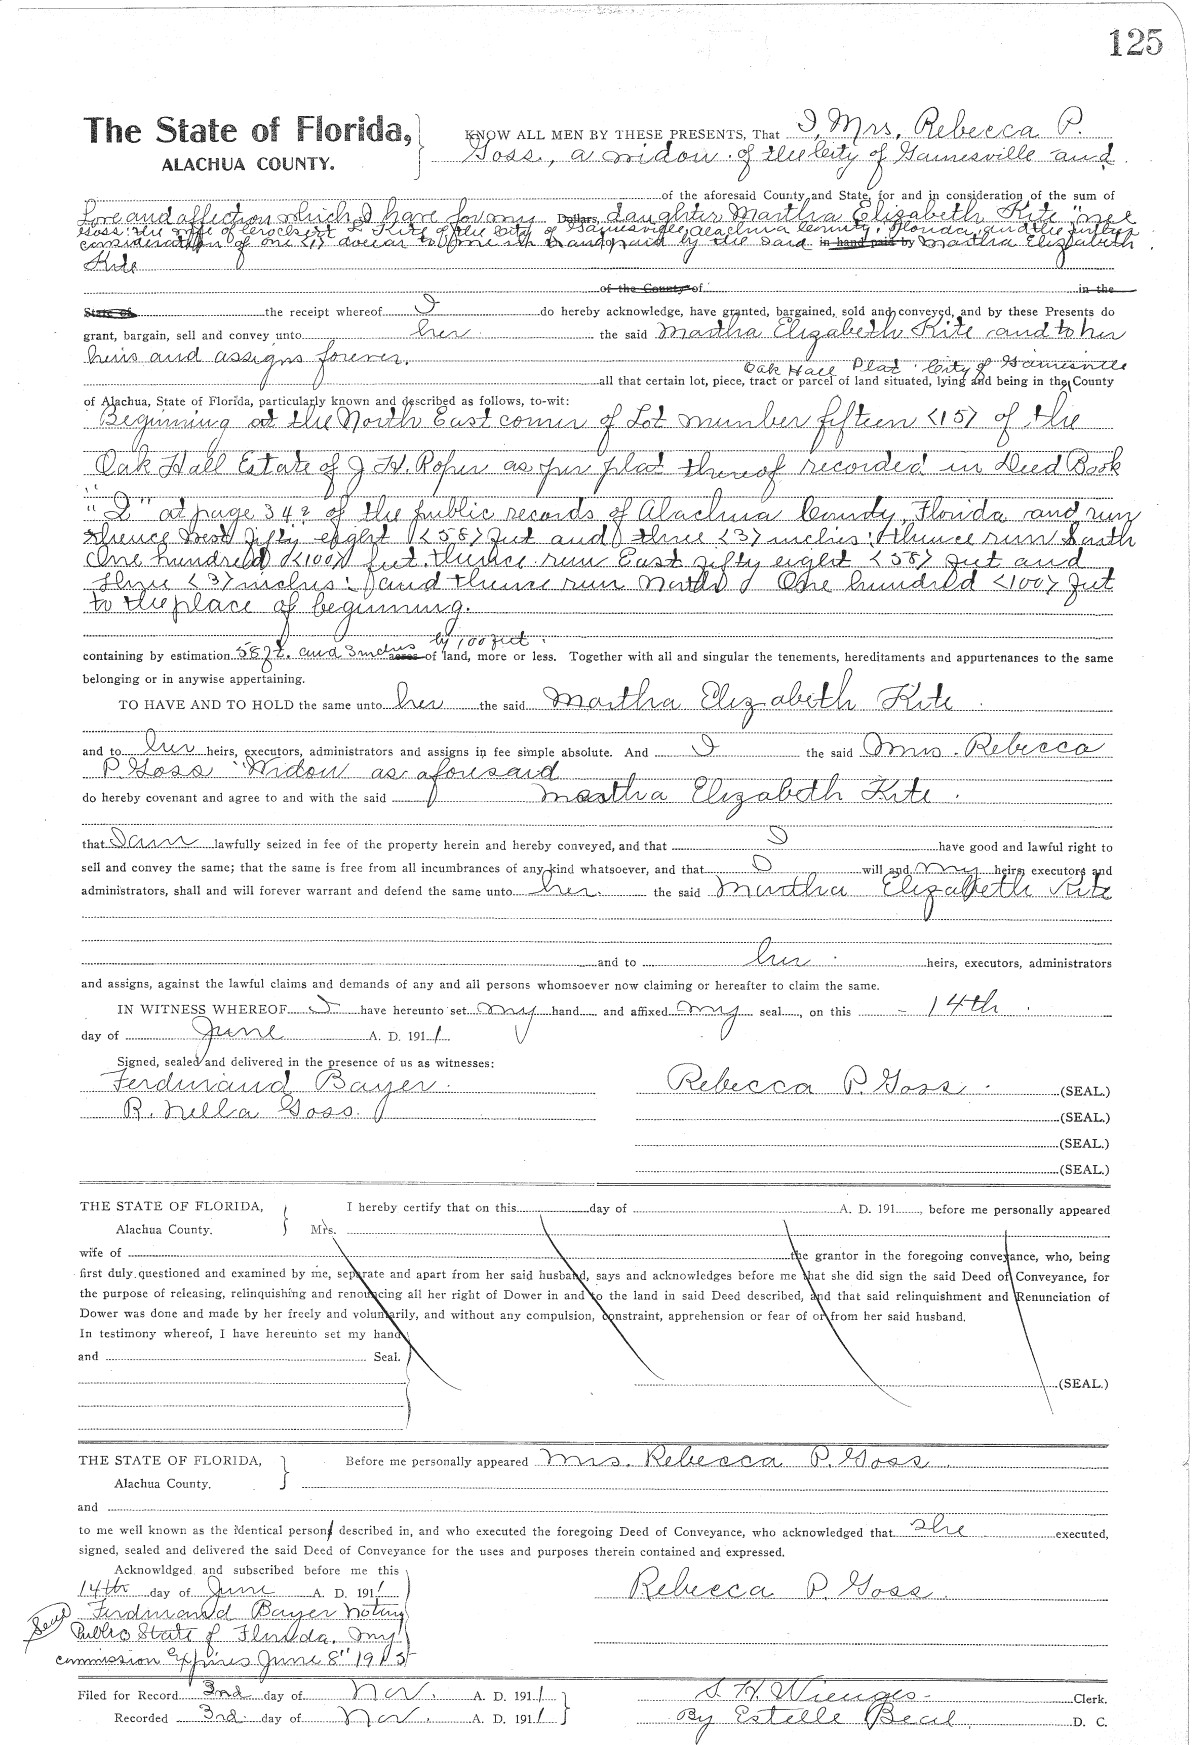 125
The State of Florida, KNOW ALL MEN BY THESE PRESENTS, That I, Mrs, Rebecca P.
ALACHUA COUNTY. Goss, a widow of the City of Gainesville and
of the aforesaid County and State, for and in consideration of the sum of
Love and affection which I have for my Dollars, daughter Martha Elizabeth Kite "nee
Goss: the wife of L Kite of the City of Gainesville, Alachua County, Florida, and the further
consideration of one <1> dollar to me in hand paid by the said in hand paid by Martha Elizabeth
Kite
of the County of in the
State of the receipt whereof I do hereby acknowledge, have granted, bargained, sold and conveyed, and by these Presents do
grant, bargain, sell and convey unto her the said Martha Elizabeth Kite and to her
heirs and assigns forever.
Oak Hall Plat City of Gainesville
all that certain lot, piece, tract or parcel of land situated, lying and being in the County
of Alachua, State of Florida, particularly known and described as follows, to-wit:
Beginning at the North East corner of Lot number fifteen <15> of the
Oak Hall Estate of J H. Roper as per plat thereof recorded in Deed Book
"I" at page 342 of the public records of Alachua County, Florida and run
thence West fifty eight <58> feet and three <3> inches: thence run South
One hundred <100> feet. thence run East fifty eight <58> feet and
three <3> inches: and thence run North One hundred <100> feet
to the place of beginning.
by 100 feet.
containing by estimation 58 ft. and 3 inches acres of land, more or less. Together with all and singular the tenements, hereditaments and appurtenances to the same
belonging or in anywise appertaining.
TO HAVE AND TO HOLD the same unto her the said Martha Elizabeth Kite
and to her heirs, executors, administrators and assigns in fee simple absolute. And I the said Mrs. Rebecca
P. Goss "Widow as aforesaid
do hereby covenant and agree to and with the said Martha Elizabeth Kite.
that I am lawfully seized in fee of the property herein and hereby conveyed, and that I have good and lawful right to
sell and convey the same; that the same is free from all incumbrances of any kind whatsoever, and that I will and my heirs, executors and
administrators, shall and will forever warrant and defend the same unto her. the said Martha Elizabeth Kite
and to her heirs, executors, administrators
and assigns, against the lawful claims and demands of any and all persons whomsoever now claiming or hereafter to claim the same.
IN WITNESS WHEREOF I have hereunto set my hand and affixed my seal, on this 14th
day of June A. D. 1911
Signed, sealed and delivered in the presence of us as witnesses:
Ferdinand Bayer. Rebecca P. Goss. (SEAL.)
R. Nella Goss. (SEAL.)
(SEAL.)
(SEAL.)
THE STATE OF FLORIDA, I hereby certify that on this day of A. D. 191 , before me personally appeared
Alachua County. Mrs.
wife of the grantor in the foregoing conveyance, who, being
first duly questioned and examined by me, separate and apart from her said husband, says and acknowledges before me that she did sign the said Deed of Conveyance, for
the purpose of releasing, relinquishing and renouncing all her right of Dower in and to the land in said Deed described, and that said relinquishment and Renunciation of
Dower was done and made by her freely and voluntarily, and without any compulsion, constraint, apprehension or fear of or from her said husband.
In testimony whereof, I have hereunto set my hand
and Seal.
(SEAL.)
THE STATE OF FLORIDA, Before me personally appeared Mrs. Rebecca P. Goss
Alachua County.
and
to me well known as the identical person described in, and who executed the foregoing Deed of Conveyance, who acknowledged that she executed,
signed, sealed and delivered the said Deed of Conveyance for the uses and purposes therein contained and expressed.
Acknowldged and subscribed before me this
14th day of June A. D. 1911 Rebecca P. Goss.
Seal Ferdinand Bayer Notary
Public State of Florida. my
commission Expires June 8" 1913
Filed for Record 3rd day of Nov. A. D. 1911 S. H. Wienges. Clerk.
Recorded 3rd day of Nov. A. D. 1911 By Estelle D. C.